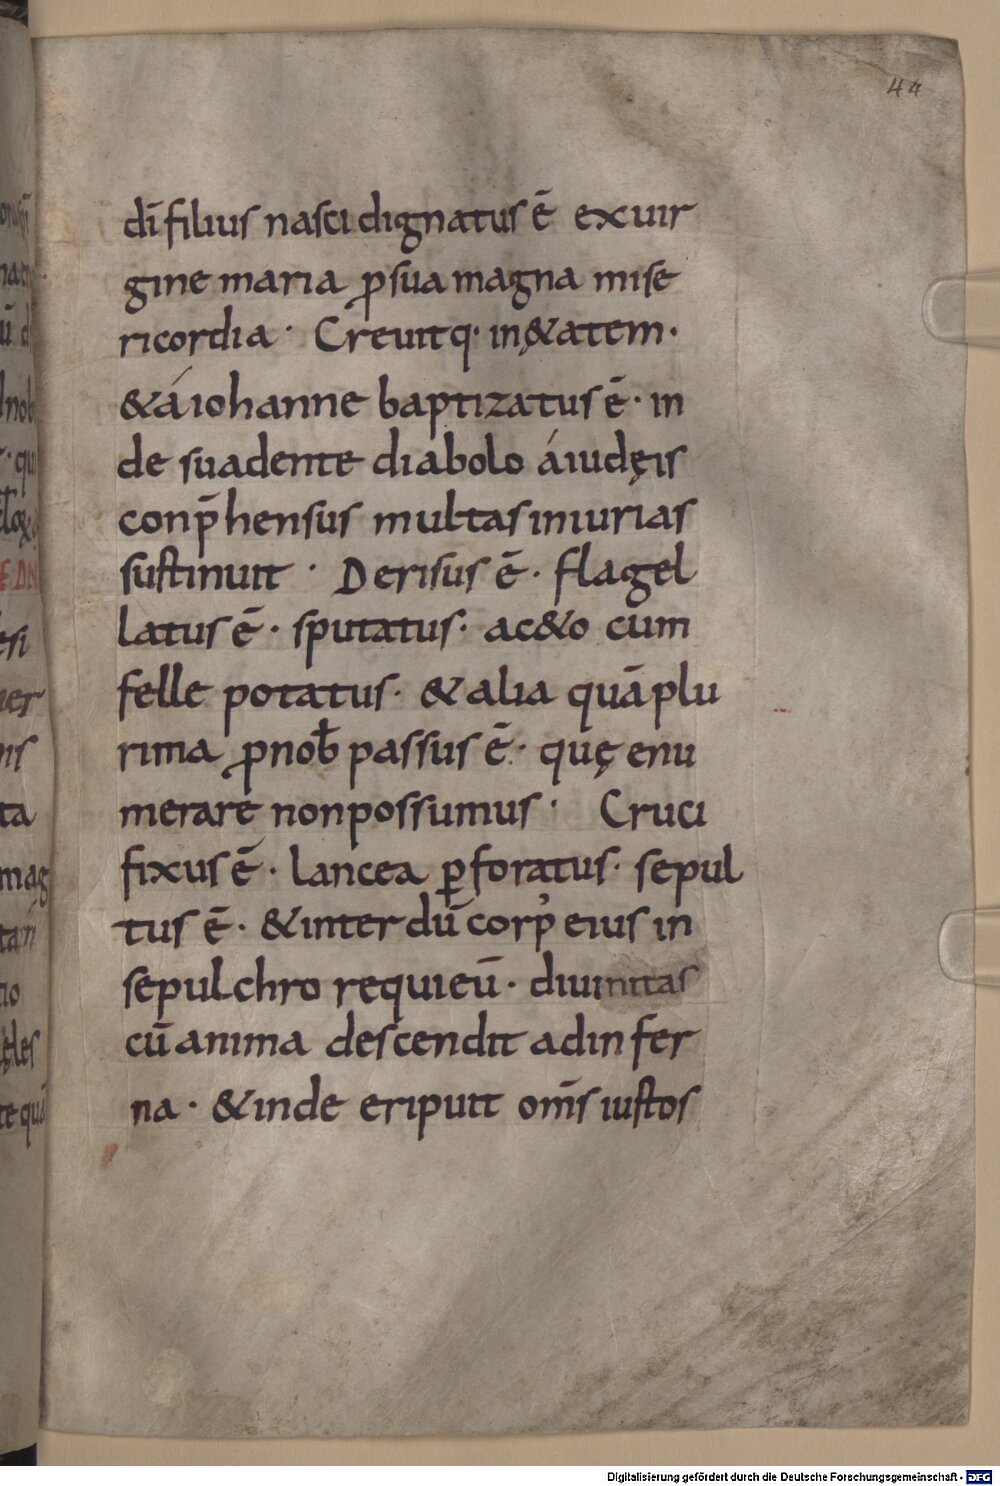 44
dī filius nasci dignatus ē ex uir
gine maria ꝓ sua magna mise
ricordia · Creuitq· in &atem ·
& á iohanne baptizatus ē · in
de suadente diabolo á iudęis
conp̄hensus multas iniurias
sustinuit · Derisus ē · flagel
latus ē · sputatus · ac&o cum
felle potatus · & alia quā plu
rima ꝓ nob̄ passus ē · quę enu
merare non possumus · Cruci
fixus ē · lancea ꝑforatus · sepul
tus ē · & interdū corp᾽ eius in
sepulchro requieū · diuinitas
cū anima descendit ad infer
na · & inde eripuit om̄s iustos
Digitalisierung gefördert durch die Deutsche Forschungsgemeinschaft - DFG